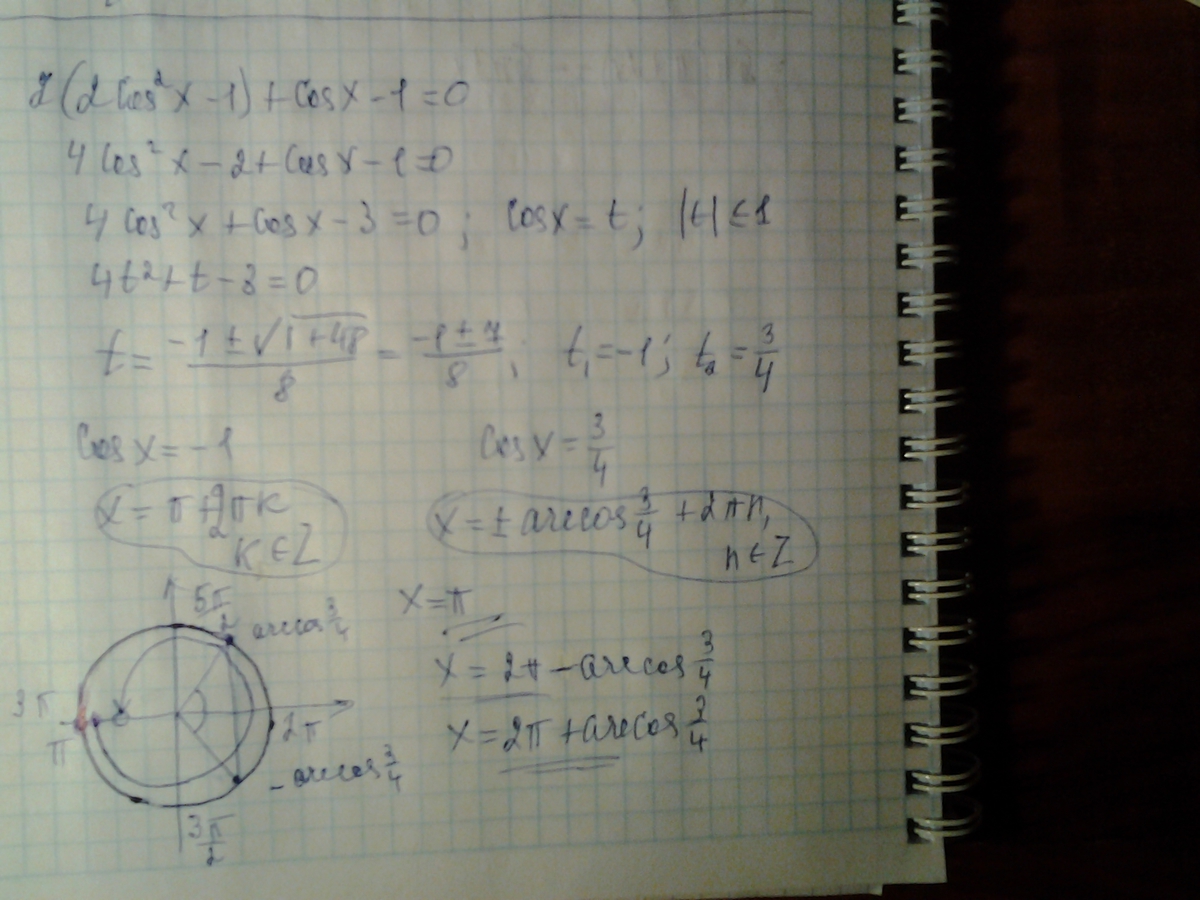 2(2cos²x-1)+cosx-1=0
4cos²x-2+cosx-1=0
4cos²x+cosx-3=0; cosx=t; |t|≤1
4t²+t-3=0
t = (-1±√(1+48))/8 = (-1±7)/8; t₁=-1; t₂=3/4
cosx=-1 cosx=3/4
x=π+2πk x=±arccos 3/4 +2πn,
k∈Z n∈Z
5π/2 arccos 3/4 x=π
x=2π-arccos 3/4
3π π 2π x=2π+arccos 3/4
-arccos 3/4
3π/2